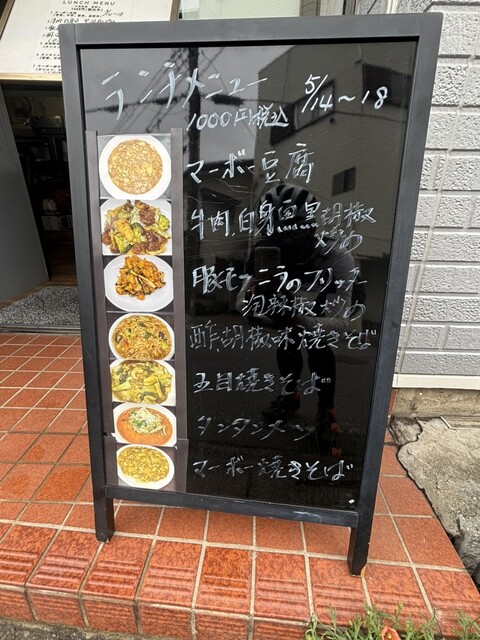 LUNCH MENU
ランチメニュー 5/14〜18
1000円税込
マーボー豆腐
牛肉、白身魚黒胡椒
炒め
豚モツニラのフリッター
泡辣椒炒め
酢胡椒味焼きそば
五目焼きそば
タンタンメン
マーボー焼きそば